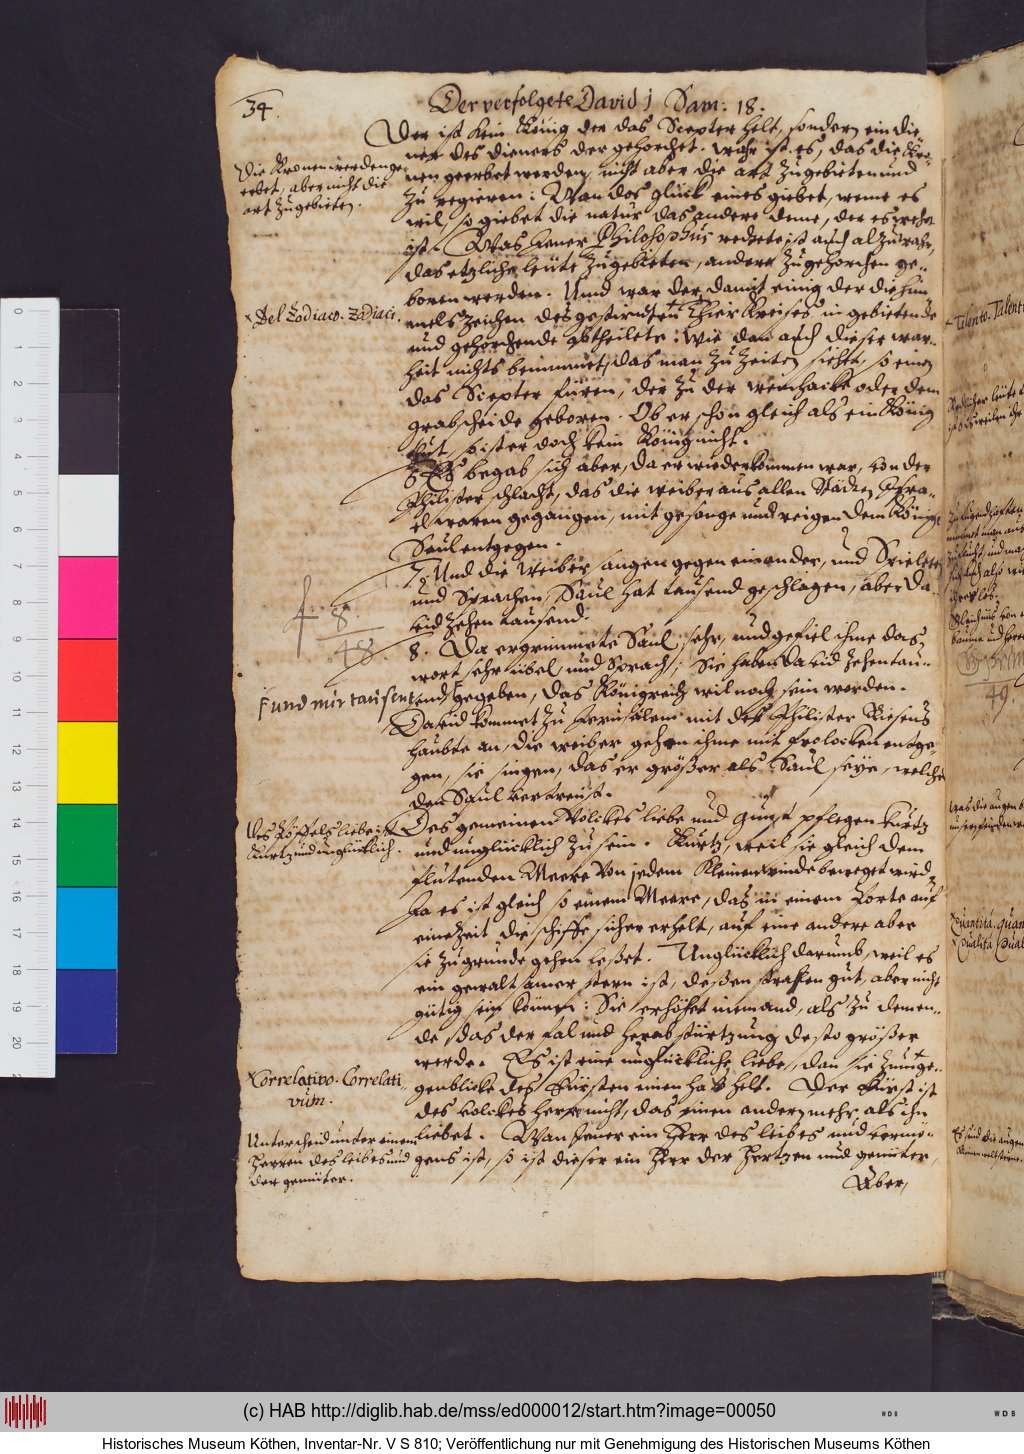 34.
Der verfolgete David 1 Sam: 18.
Der ist kein König der das Scepter helt, sondern ein die-
ner des dieners der gehorchet. wahr ist es, das die Kro-
nen geerbet werden, nicht aber die art zugebieten und
zu regieren: Wan das glück eines giebet, weme es
wil, so giebet die natur das andere deme, der es wehrt
ist. Was jener Philosophus redete, ist auch alzuwahr,
das etzliche leüte zugebieten, andere zugehorchen ge-
boren werden. Und war der damit einig der die him-
mels zeichen des gestirnten Thier Kreises in gebietende
und gehorchende abtheilete: wie dan auch dieser war-
heit nichts benimmet, das man zu zeiten siehet, so einen
das Scepter füren, der zu der weinhacke oder dem
grabscheide geboren. Ob er schon gleich als ein König
tut, so ist er doch kein König nicht.
6 Es begab sich aber, da er wiederkommen war, von der
Philister schlacht, das die weiber aus allen Städten Isra-
el waren gegangen, mit gesange und reigen dem Könige
Saul entgegen.
7. Und die Weiber sangen gegen einander, und Spieleten
und Sprachen, Saul hat tausend geschlagen, aber Da-
vid zehen tausend.
8. Da ergrimmete Saul sehr, und gefiel ihme das
wort sehr übel, und Sprach; Sie haben David zehen tau-
send gegeben, das Königreich wil noch sein werden.
David kommet zu Jerusalem mit des Philister Riesens
haubte an, die weiber gehen ihme mit frolocken entge-
gen, sie singen, das er größer als Saul seye, welches
den Saul
Des gemeinen Volckes liebe und gunst pflegen kurtz
und unglücklich zu sein. Kurtz, weil sie gleich dem
flutenden Meere von jedem kleinen winde beweget wird,
Ja es ist gleich so einem Meere, das in einem Orte auf
eine Zeit die schiffe sicher erhelt, auf eine andere aber
sie zugrunde gehen leßet. Unglücklich darumb, weil es
ein gewaltsamer stern ist, deßen straßen gut, aber nicht
gütig sein können: Sie erhöhet niemand, als zu dem en-
de, das der fal und herabstürtzung desto größer
werde. Es ist eine unglückliche liebe, dan sie zum ge-
genblicke des Fürsten einen haß helt. Der Fürst ist
des volckes herr nicht, das einen andern mehr als ihn
liebet. Wan jener ein Herr des leibes und vermö-
gens ist, so ist dieser ein Herr der Hertzen und gemüter,
Aber,
Die Kronen werden ge-
erbet, aber nicht die
art zugebieten.
× Del Zodiaco. Zodiaci.
f. 8.
48
f und mir tausent
Des Pöffels liebe ist
kurtz und unglücklich.
×Correlativo. Correlati-
vum.
Unterscheid unter einem
Herren des leibes und
der gemüter.
×Talento. Talent
49.
Was die augen
×Quantitá. Quan
×Qualitá Qual
0
2
3
4
5
6
7
8
9
10
11
12
13
14
15
16
17
18
19
20
(c) HAB http://diglib.hab.de/mss/ed000012/start.htm?image=00050
WDB
WDB
Historisches Museum Köthen, Inventar-Nr. V S 810; Veröffentlichung nur mit Genehmigung des Historischen Museums Köthen